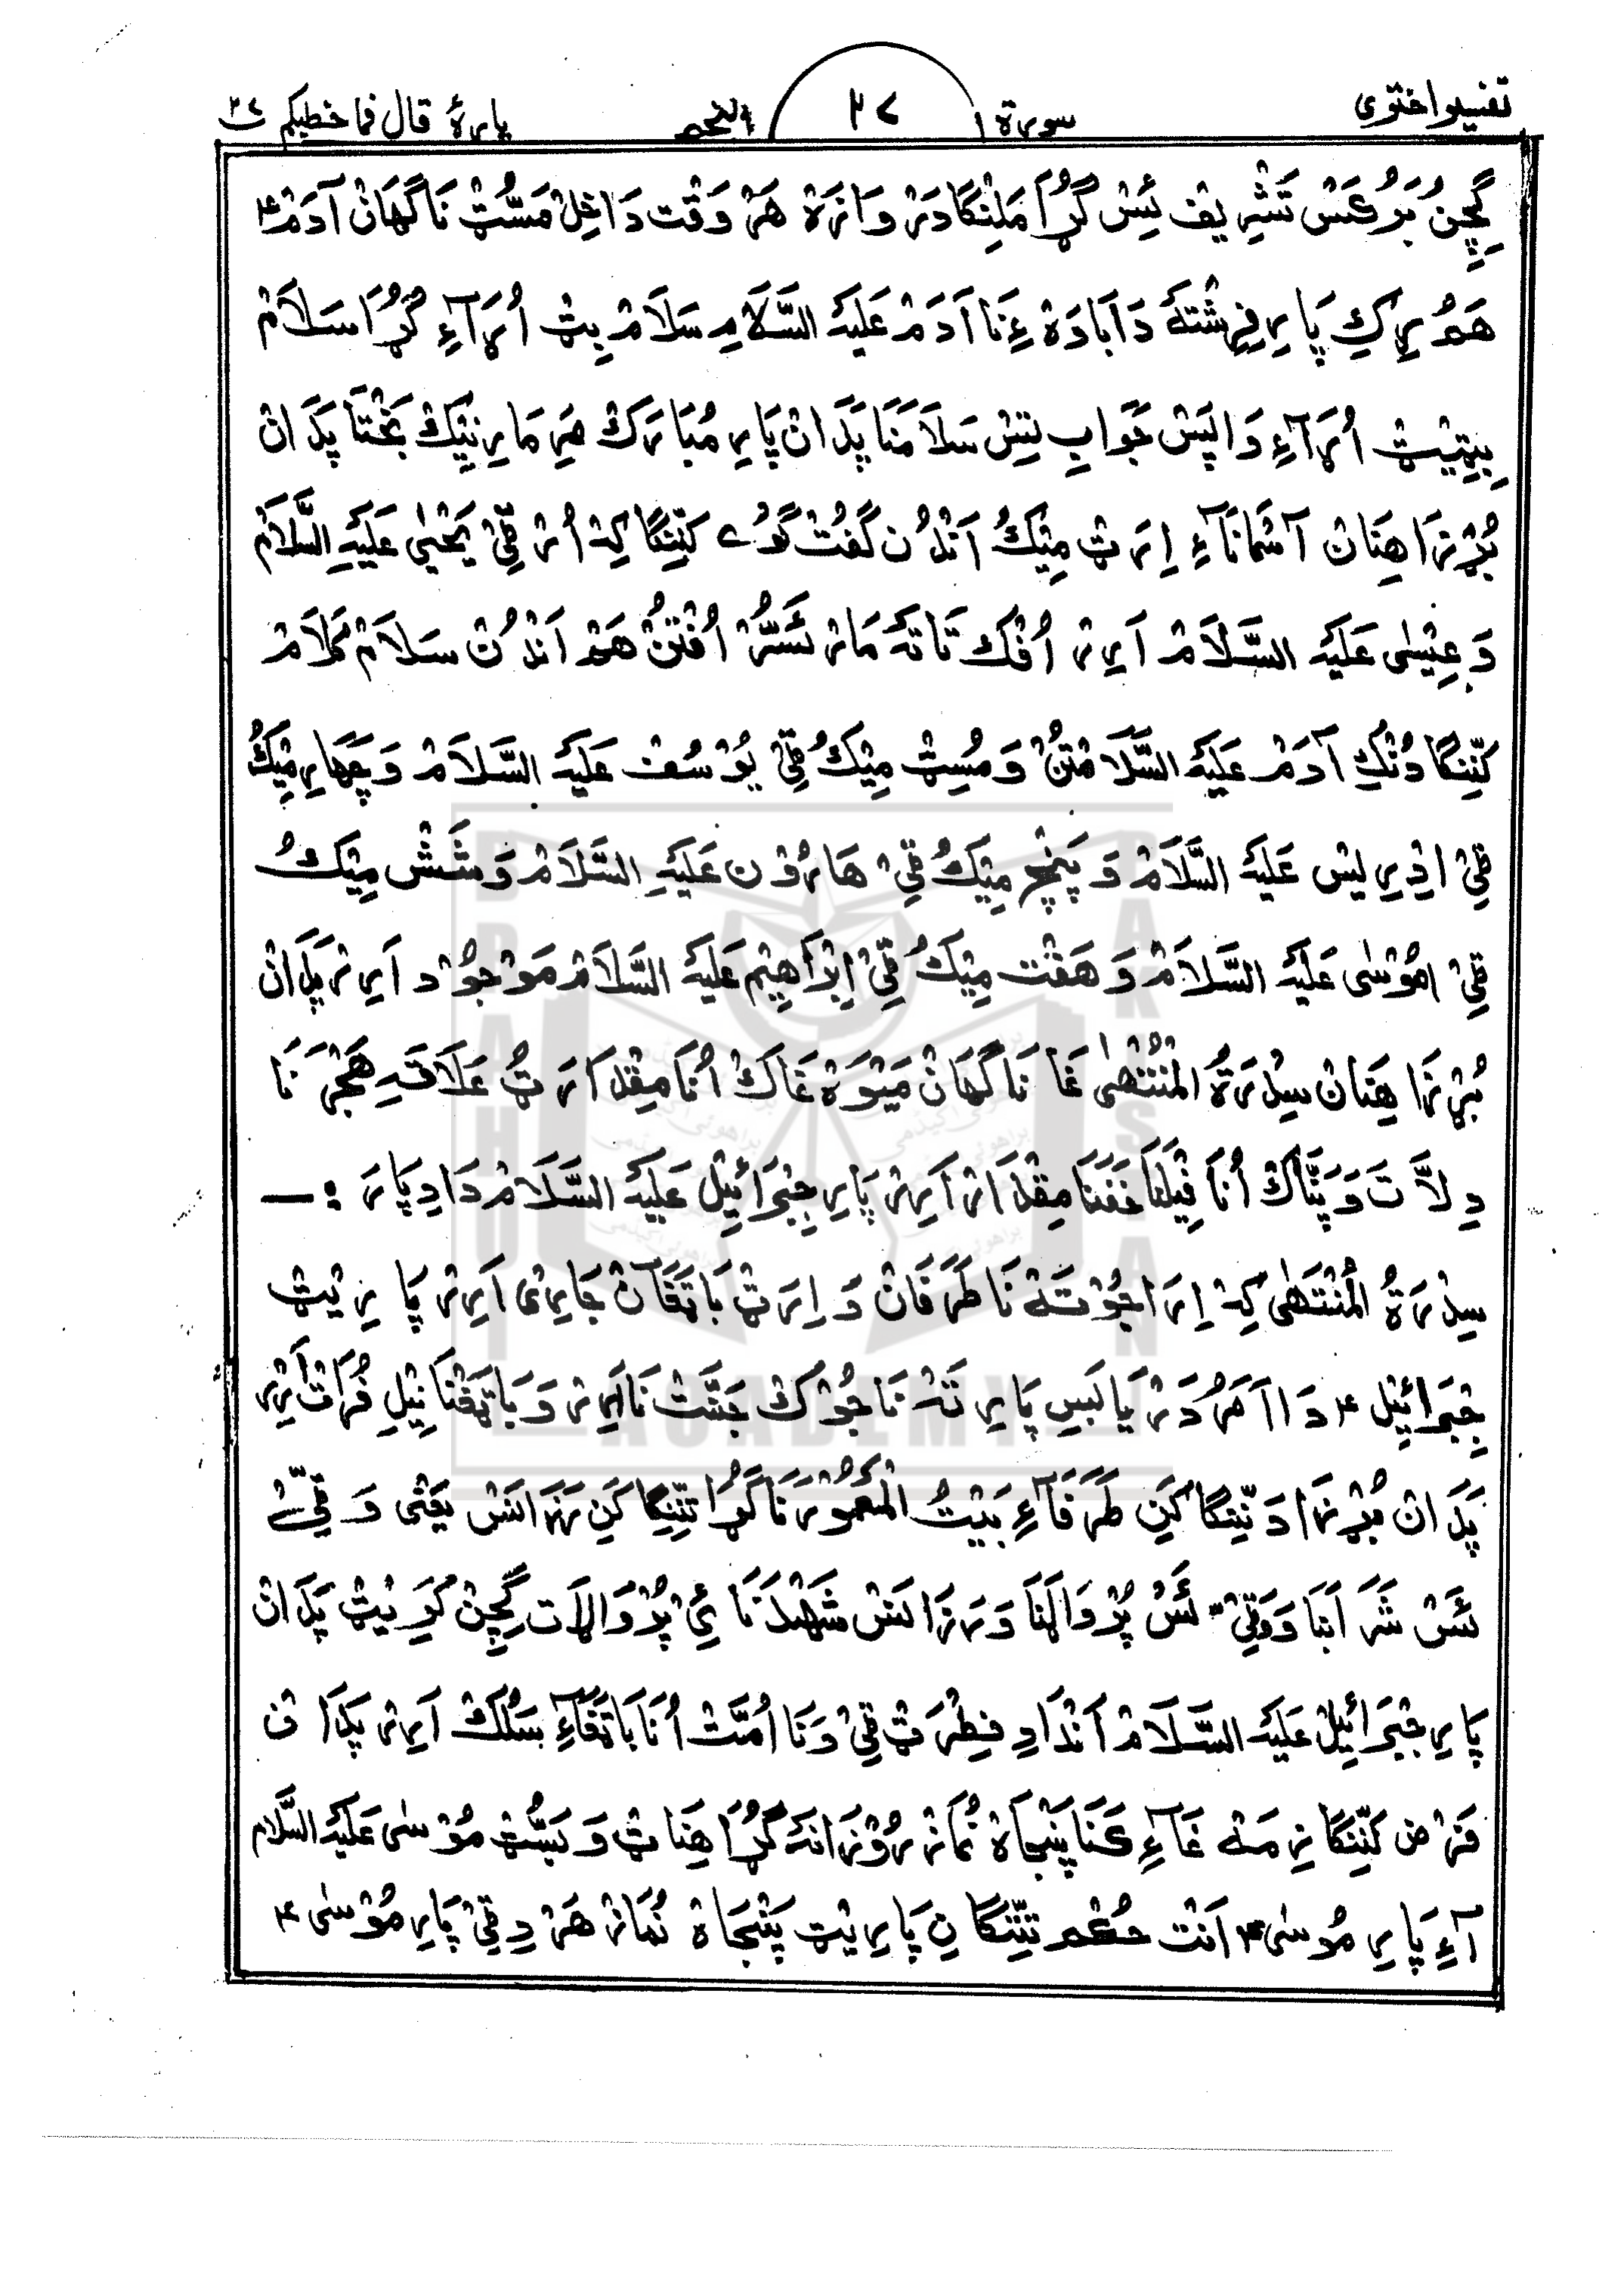 تفسیر اختری
سورة النجم
۲۷
پارۀ قال فما خطبکم ۲۷
گچِنُ بَرکَس تَشرِیف ئِس گُڑا مَلِنگا دَروَازَہ هَر وَقت دَاخِل مَسُّٹ نَاگَهَان آدَم ؑ
هَمُرِکِ پَارِ فِرِشتَہ دَا بَاوَہ ءِ نَا آدَم عَلَیهِ السَّلَام سَلَام بِٹ اُرَآءِ گُڑا سَلَام
بِتِیٹ اُرَآءِ وَاپَس جَوابِ تِس سَلَامَنَا پَدَان پَارِ مُبَارَک هَر مَارِ نِیک بَختَا پَدَان
بُرزَا هِنَان آسمَانَاءِ اِرَٹ مِیکُ اَندُن گُفت گُوے کَنِّنگا کِہ اُر قِی یَحیٰی عَلَیهِ السَّلَام
وَ عِیسٰی عَلَیهِ السَّلَام اَرِر اُفک تَاتَہ مَار ئَسُّر اُفتَن هَم اَندُن سَلَام کَلَام
کَنِّنگا دُنکِ آدَم عَلَیهِ السَّلَامتَن وَ مُسِٹ مِیکُ قِی یُوسُف عَلَیهِ السَّلَام وَ چَهَارِمِیکُ
قِی اِدرِیس عَلَیهِ السَّلَام وَ پَنچ مِیکُ قِی هَارُون عَلَیهِ السَّلَام وَ شَش مِیکُ
قِی مُوسٰی عَلَیهِ السَّلَام وَ هَفت مِیکُ قِی اِبرَاهِیم عَلَیهِ السَّلَام مَوجُود اَرِر پَدَان
بُرزَا هِنَان سِدرَةُ المُنتَهٰی غَا نَاگَهَان مَیوَہ غَاک اُنَا مِقدَارَٹ عَلَاقَہِ هَجَر نَا
دِلَّا تَ وَ پَنَّاک اُنَا فِیلنَا خَفَنَا مِقدَار اَرِر پَارِ جِبرَائِیل عَلَیهِ السَّلَام دَادِ پَارَ :—
سِدرَةُ المُنتَهٰی کِہ اِرَا جُوتَہ نَا طَرَفَان وَ اِرَٹ بَاتَفَان جَارِی اَرِر پَارِیٹ
جِبرَائِیل ؑ دَا اَمَر دَریَابَسِ پَارِ تَہ نَا جُوک جَنَّت نَا اَرِر وَ بَاتَفنَا نِیل فُرَات اَرِر
پَدَان بُرزَا دَنِّنگا کَنِ طَرَفَاءِ بَیتُ المَعمُور نَا گُڑا تِنِّنگا کَنِ رَزَانَس یَعنِی وَقِیّ
ئَس شَرَابَنَا وَوَقِی ئَس پُدوَالنَا وَ رَزَانَس شَهدنَا ئِی پُدوَالَات گَچِن کَرِیٹ پَدَان
پَارِ جِبرَائِیل عَلَیهِ السَّلَام اَندَادِ فِطرَت قِی وَنَا اُمَّت اُنَا بَاتَفَاءِ سَلُک اَرِر پَدَان
فَرض کَنِّنگا ذِمَہ غَآءِ کَنَا پَنجَاہ نَمَاز رُوزَانَہ گُڑا هِنَاٹ وَ بَسُّٹ مُوسٰی عَلَیهِ السَّلَام
آءِ پَارِ مُوسٰی ؑ اَنت حُکم تِنِّنگانِ پَارِیٹ پَنجَاہ نَمَاز هَر دِقِی پَارِ مُوسٰی ؑ
BRAHUI
ACADEMY
PAKISTAN